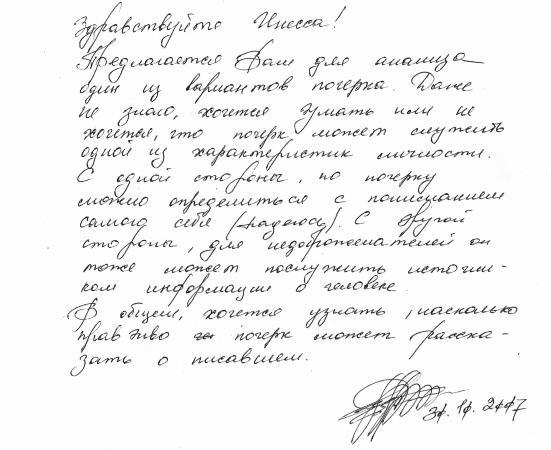 Здравствуйте Инесса!
Предлагается Вам для анализа
один из вариантов почерка. Даже
не знаю, хочется думать или не
хочется, что почерк может служить
одной из характеристик личности.
С одной стороны, по почерку
можно определиться с пониманием
самого себя (надеюсь). С другой
стороны, для недоброжелателей он
тоже может послужить источни-
ком информации о человеке.
В общем, хочется узнать, насколько
правдиво почерк может расска-
зать о писавшем.
30.10.2007